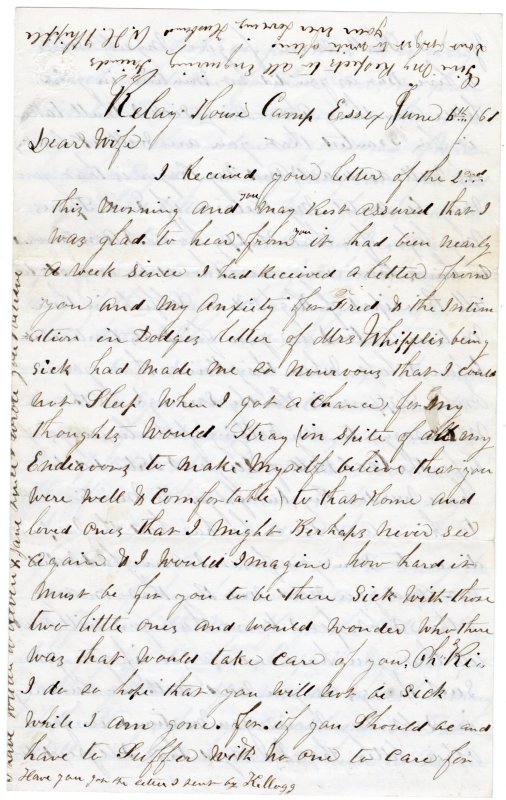 Give My Respects to all Enquiring Friends
Dont forget to write often
Your Ever Loveing Husband A. H. Whipple
Relay House Camp Essex June 6th /61
Dear Wife
I Received your letter of the 2ond
this Morning and you May Rest assured that I
was glad to hear from you it had been nearly
a week since I had Received a letter from
you and My Anxiety for Fred & the Intim
ation in Dodges letter of Mrs Whipples being
sick had made me so Nourvous that I could
not Sleep When I got a chance, for My
thoughts would Stray (in spite of all my
Endeavors to Make Myself believe that you
were well & Comfortable) to that Home and
loved ones that I Might Perhaps never see
again & I would Imagine how hard it
Must be for you to be there Sick with those
two little ones and would wonder who there
was that would take care of you, Oh "Ri"
I do so hope that you will not be sick
while I am gone. for if you Should be and
have to Suffer with no one to care for
Have you got the letter I sent by Kellogg
I have written to &amp; Jane since I wrote you before